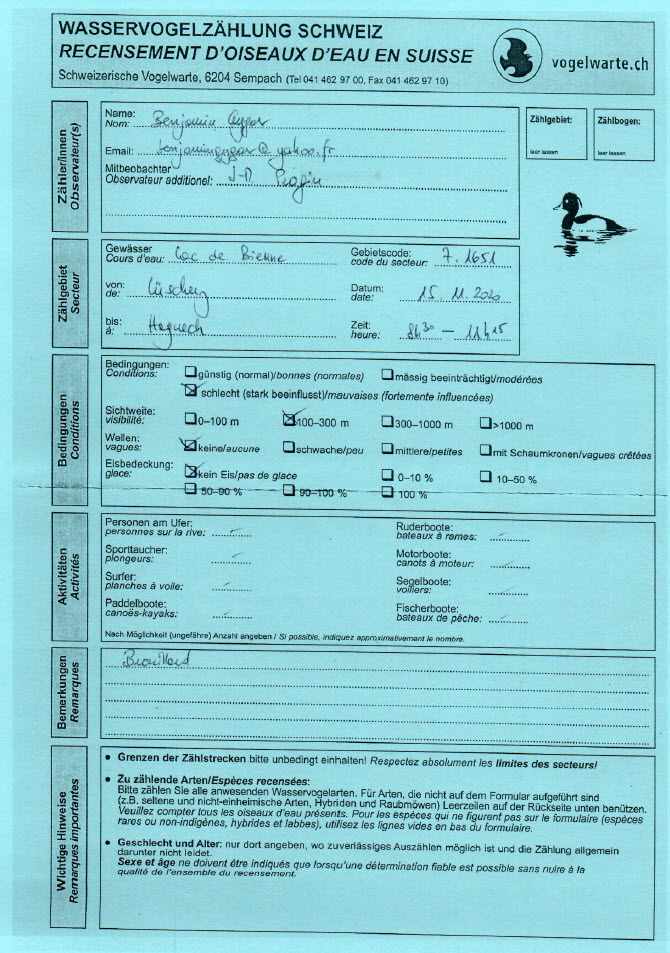 WASSERVOGELZÄHLUNG SCHWEIZ
RECENSEMENT D'OISEAUX D'EAU EN SUISSE
Schweizerische Vogelwarte, 6204 Sempach (Tel 041 462 97 00, Fax 041 462 97 10)
vogelwarte.ch
Zähler/innen
Observateur(s)
Name:
Nom: Benjamin
Email:
Mitbeobachter
Observateur additionel: J-D Progin
Zählgebiet:
leer lassen
Zählbogen:
leer lassen
Zählgebiet
Secteur
Gewässer
Cours d'eau: Lac de Bienne
Gebietscode:
code du secteur: 7.1651
von:
de: Lüscherz
Datum:
date: 15.11.2020
bis:
à: Hagneck
Zeit:
heure: 8h30 – 11h15
Bedingungen
Conditions
Bedingungen:
Conditions:
günstig (normal)/bonnes (normales)
mässig beeinträchtigt/modérées
schlecht (stark beeinflusst)/mauvaises (fortemente influencées)
Sichtweite:
visibilité:
0–100 m
100–300 m
300–1000 m
>1000 m
Wellen:
vagues:
keine/aucune
schwache/peu
mittlere/petites
mit Schaumkronen/vagues crêtées
Eisbedeckung:
glace:
kein Eis/pas de glace
0–10 %
10–50 %
50–90 %
90–100 %
100 %
Aktivitäten
Activités
Personen am Ufer:
personnes sur la rive:
Ruderboote:
bateaux à rames:
Sporttaucher:
plongeurs:
Motorboote:
canots à moteur:
Surfer:
planches à voile:
Segelboote:
voiliers:
Paddelboote:
canoës-kayaks:
Fischerboote:
bateaux de pêche:
Nach Möglichkeit (ungefähre) Anzahl angeben / Si possible, indiquez approximativement le nombre.
Bemerkungen
Remarques
Brouillard
Wichtige Hinweise
Remarques importantes
• Grenzen der Zählstrecken bitte unbedingt einhalten! Respectez absolument les limites des secteurs!
• Zu zählende Arten/Espèces recensées:
Bitte zählen Sie alle anwesenden Wasservogelarten. Für Arten, die nicht auf dem Formular aufgeführt sind
(z.B. seltene und nicht-einheimische Arten, Hybriden und Raubmöwen) Leerzeilen auf der Rückseite unten benützen.
Veuillez compter tous les oiseaux d'eau présents. Pour les espèces qui ne figurent pas sur le formulaire (espèces
rares ou non-indigènes, hybrides et labbes), utilisez les lignes vides en bas du formulaire.
• Geschlecht und Alter: nur dort angeben, wo zuverlässiges Auszählen möglich ist und die Zählung allgemein
darunter nicht leidet.
Sexe et âge ne doivent être indiqués que lorsqu'une détermination fiable est possible sans nuire à la
qualité de l'ensemble du recensement.